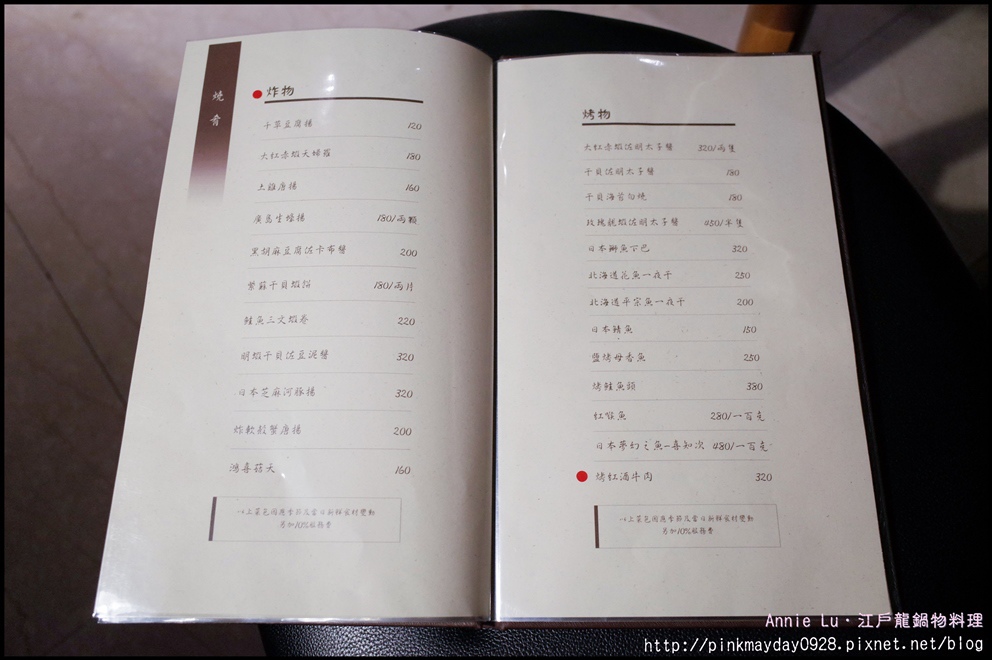 燒肴
炸物
千草豆腐揚 120
大紅赤蝦天婦羅 180
土雞唐揚 160
廣島生蠔揚 180/兩顆
黑胡麻豆腐佐卡布醬 200
紫蘇干貝蝦招 180/兩片
鮭魚三文蝦卷 220
明蝦干貝佐豆泥醬 320
日本芝麻河豚揚 320
炸軟殼蟹唐揚 200
鴻喜菇天 160
以上菜色因應季節及當日新鮮食材變動
另加10%服務費
烤物
大紅赤蝦佐明太子醬 320/兩隻
干貝佐明太子醬 180
干貝海苔勻燒 180
玫瑰糕蝦佐明太子醬 450/半隻
日本鰤魚下巴 320
北海道花魚一夜干 250
北海道平宗魚一夜干 200
日本鯖魚 150
鹽烤母香魚 250
烤鮭魚頭 380
紅喉魚 280/一百克
日本夢幻之魚-喜知次 480/一百克
烤紅酒牛肉 320
以上菜色因應季節及當日新鮮食材變動
另加10%服務費
Annie Lu·江戶龍鍋物料理
http://pinkmayday0928.pixnet.net/blog